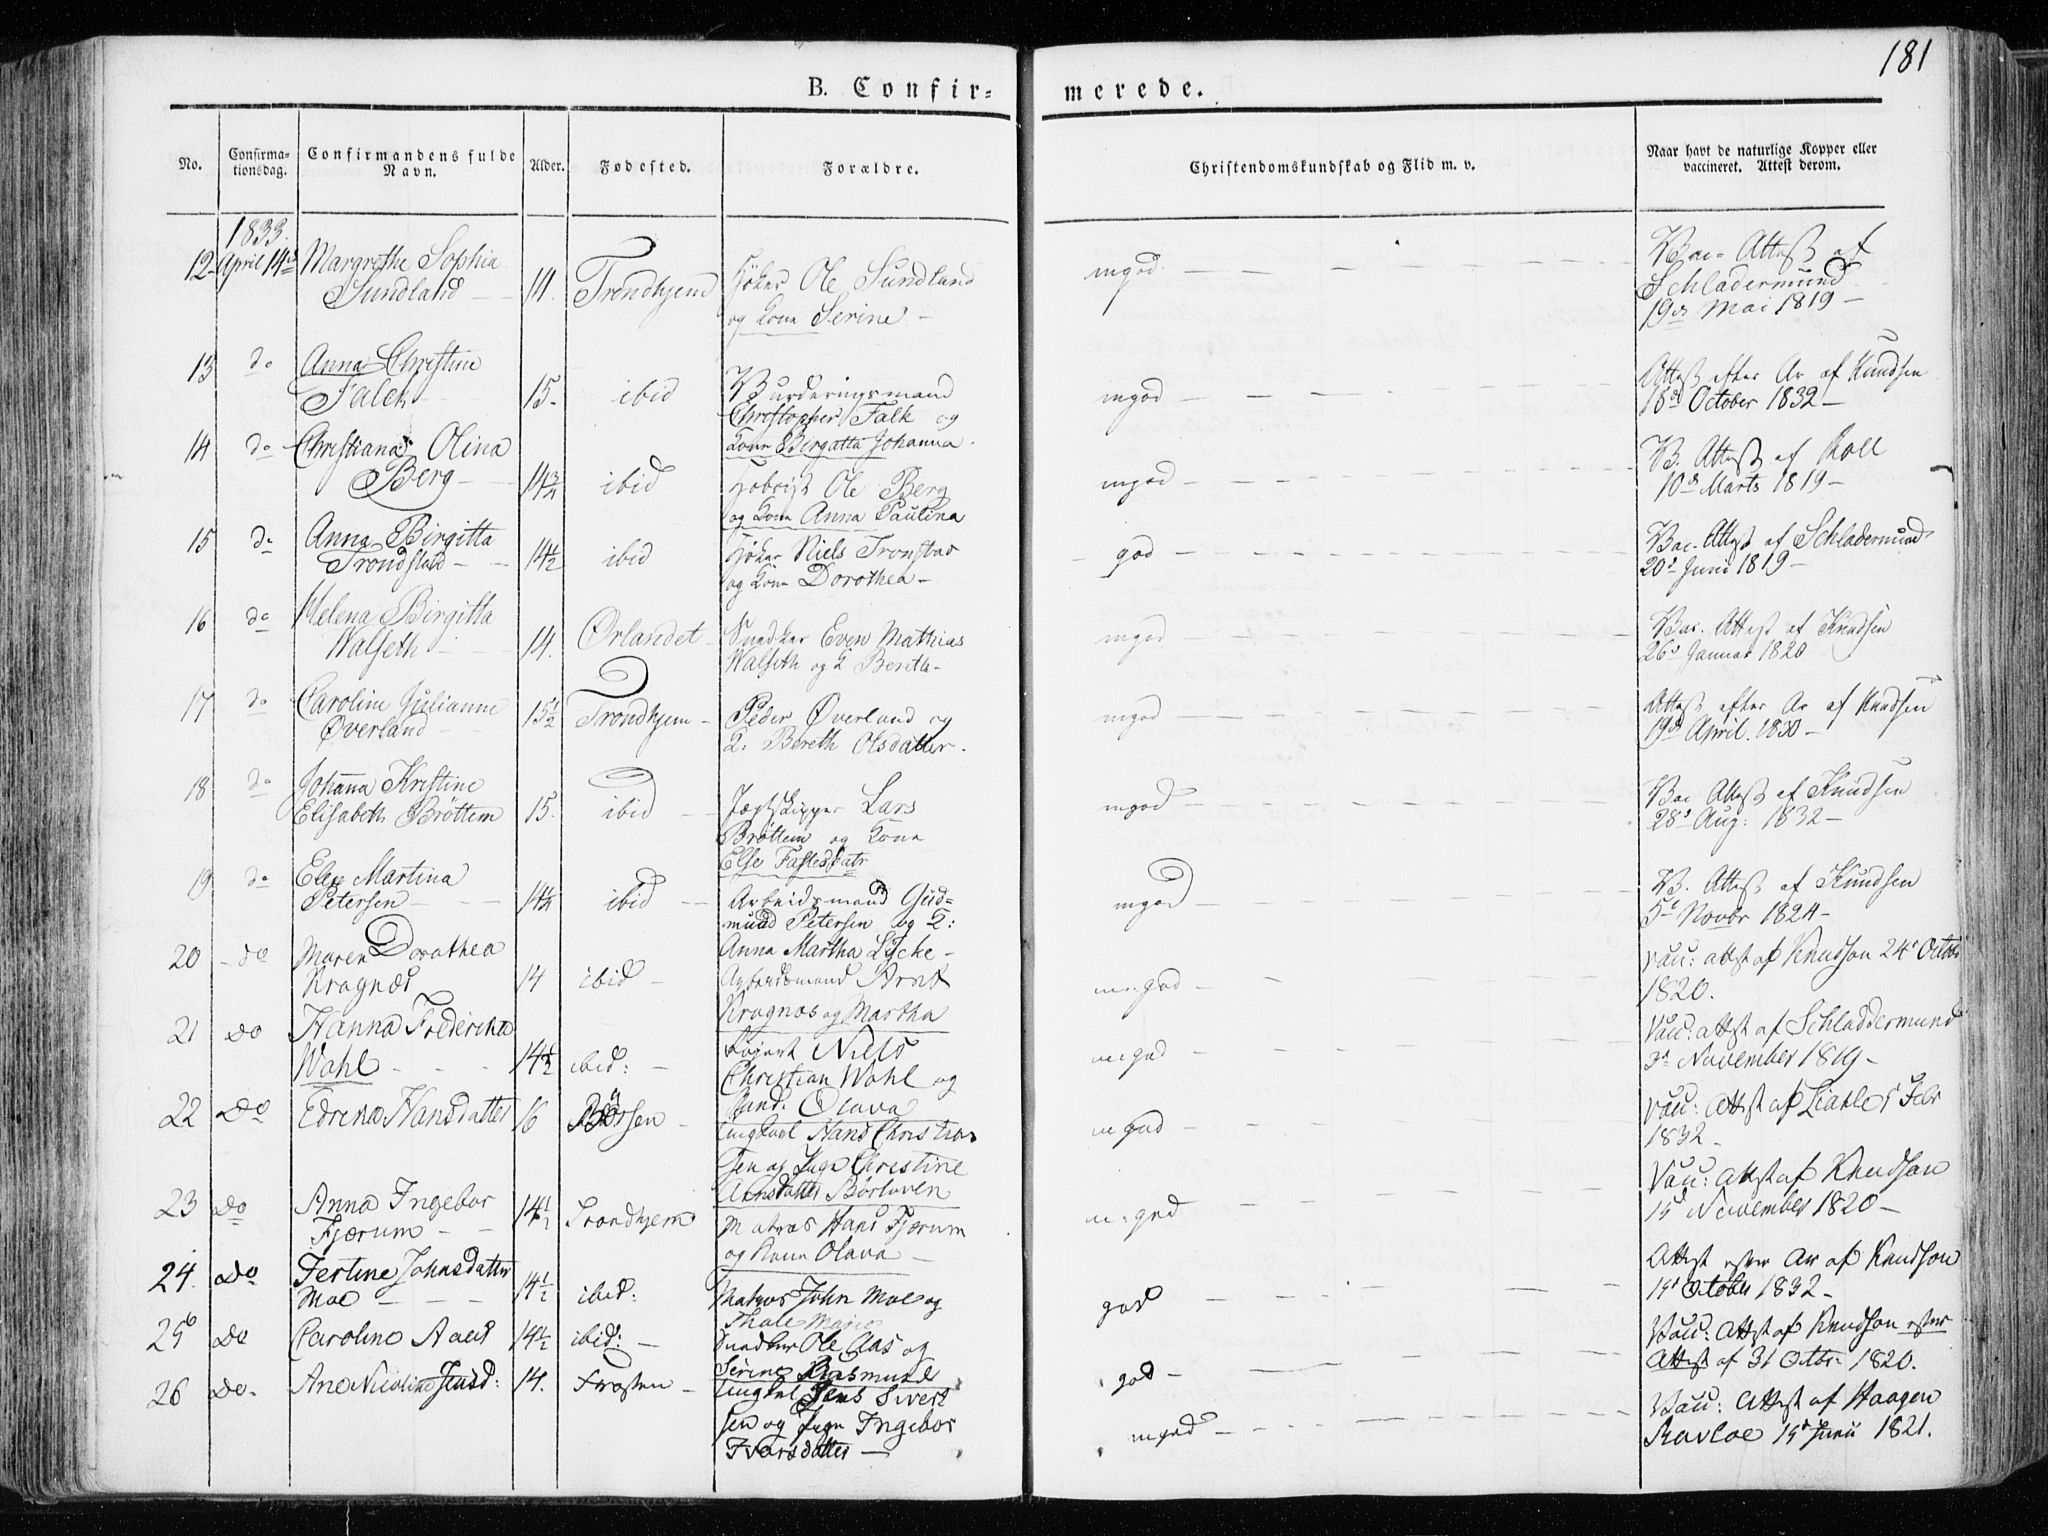 181
B. Confir-
merede.
No.
Confirma-
tionsdag.
Confirmandens fulde
Navn.
Alder.
Fødested.
Forældre.
Christendomskundskab og Flid m. v.
Naar havt de naturlige Kopper eller
vaccineret. Attest derom.
1833.
12 April 14de Margrethe Sophia
Sundland 14. Trondhjem Høker Ole Sundland
og Kone Serine
mgod
Vac. Attest af
Schladermund
19de Mai 1819
13 do Anna Christine
Falck 15. ibid Vurderingsmand
Christopher Falk og
Kone Birgatta Johanna
mgod
Attest efter Ar af Knudsen
18de October 1832
14 do Christiana Olina
Berg 14 3/4 ibid Ole Berg
og Kone Anna Paulina
mgod
V. Attest af Roll
10de Marts 1819
15 do Anna Birgitta
Trondstad 14 1/2 ibid Høker Niels Tronstad
og Kone Dorothea
god
Vac. Attest af Schladermund
20de Juni 1819
16 do Helena Birgitta
Walseth 14. Ørlandet Snedker Even Mathias
Walseth og K Bereth
mgod
Vac. Attest af Knudsen
26de Januar 1820
17 do Caroline Julianne
Øverland 15 1/2 Trondhjem Peder Øverland og
K: Bereth Olsdatter
mgod
Attest efter Ar af Knudsen
19de April 1830
18 do Johanna Kristine
Elisabeth Bröttem 15. ibid Jægtskipper Lars
Bröttem og Kone
Else Fastesdatr
mgod
Vac Attest af Knudsen
28de Aug: 1832
19 do Elen Martina
Petersen 14 1/2 ibid Arbeidsmand Gud=
mund Petersen og K:
Anna Martha Lÿcke
mgod
V. Attest af Knudsen
5te Novbr 1824
20 do Maren Dorothea
Kragnæs 14 ibid Arbeidsmand Arnt
Kragnæs og Martha
m.god
Vac: attest af Knudson 24de Octobr
1820.
21 do Hanna Frederikke
Wahl 14 1/2 ibid: Niels
Christian Wahl og
Olava
m god
Vac: attest af Schladdermund
3de November 1819
22 do Edrena Hansdatter 16 Børsen Ungkarl Hans Christian
sen og Pige Christine
Arnsdatter Börloven
m god
Vac: Attest af Febr
1832
23 do Anna Ingebor
Fjærum 14 1/2 Trondhjem Matros Hans Fjærum
og Kone Olava
m: god
Vac: Attest af Knudson
15de November 1820
24. do Fertine Johnsdatter
Moe 14 1/2 ibid: Matros John Moe og
Thale Marie
god
Attest efter Ar af Knudson
15de October 1832
25 do Caroline Aaes 14 1/2 ibid: Snedker Ole Aas og
Serine Rasmusd
god
Vac: Attest af Knudson efter
Attest af 31 Octbr 1820.
26 do Ane Nicoline Jensd: 14. Frosten Ungkarl Jens Sivert
sen og Pige Ingebor
Ivarsdatter
mgod
Vac: Attest af Haagen
Ravloe 15de Juni 1821.